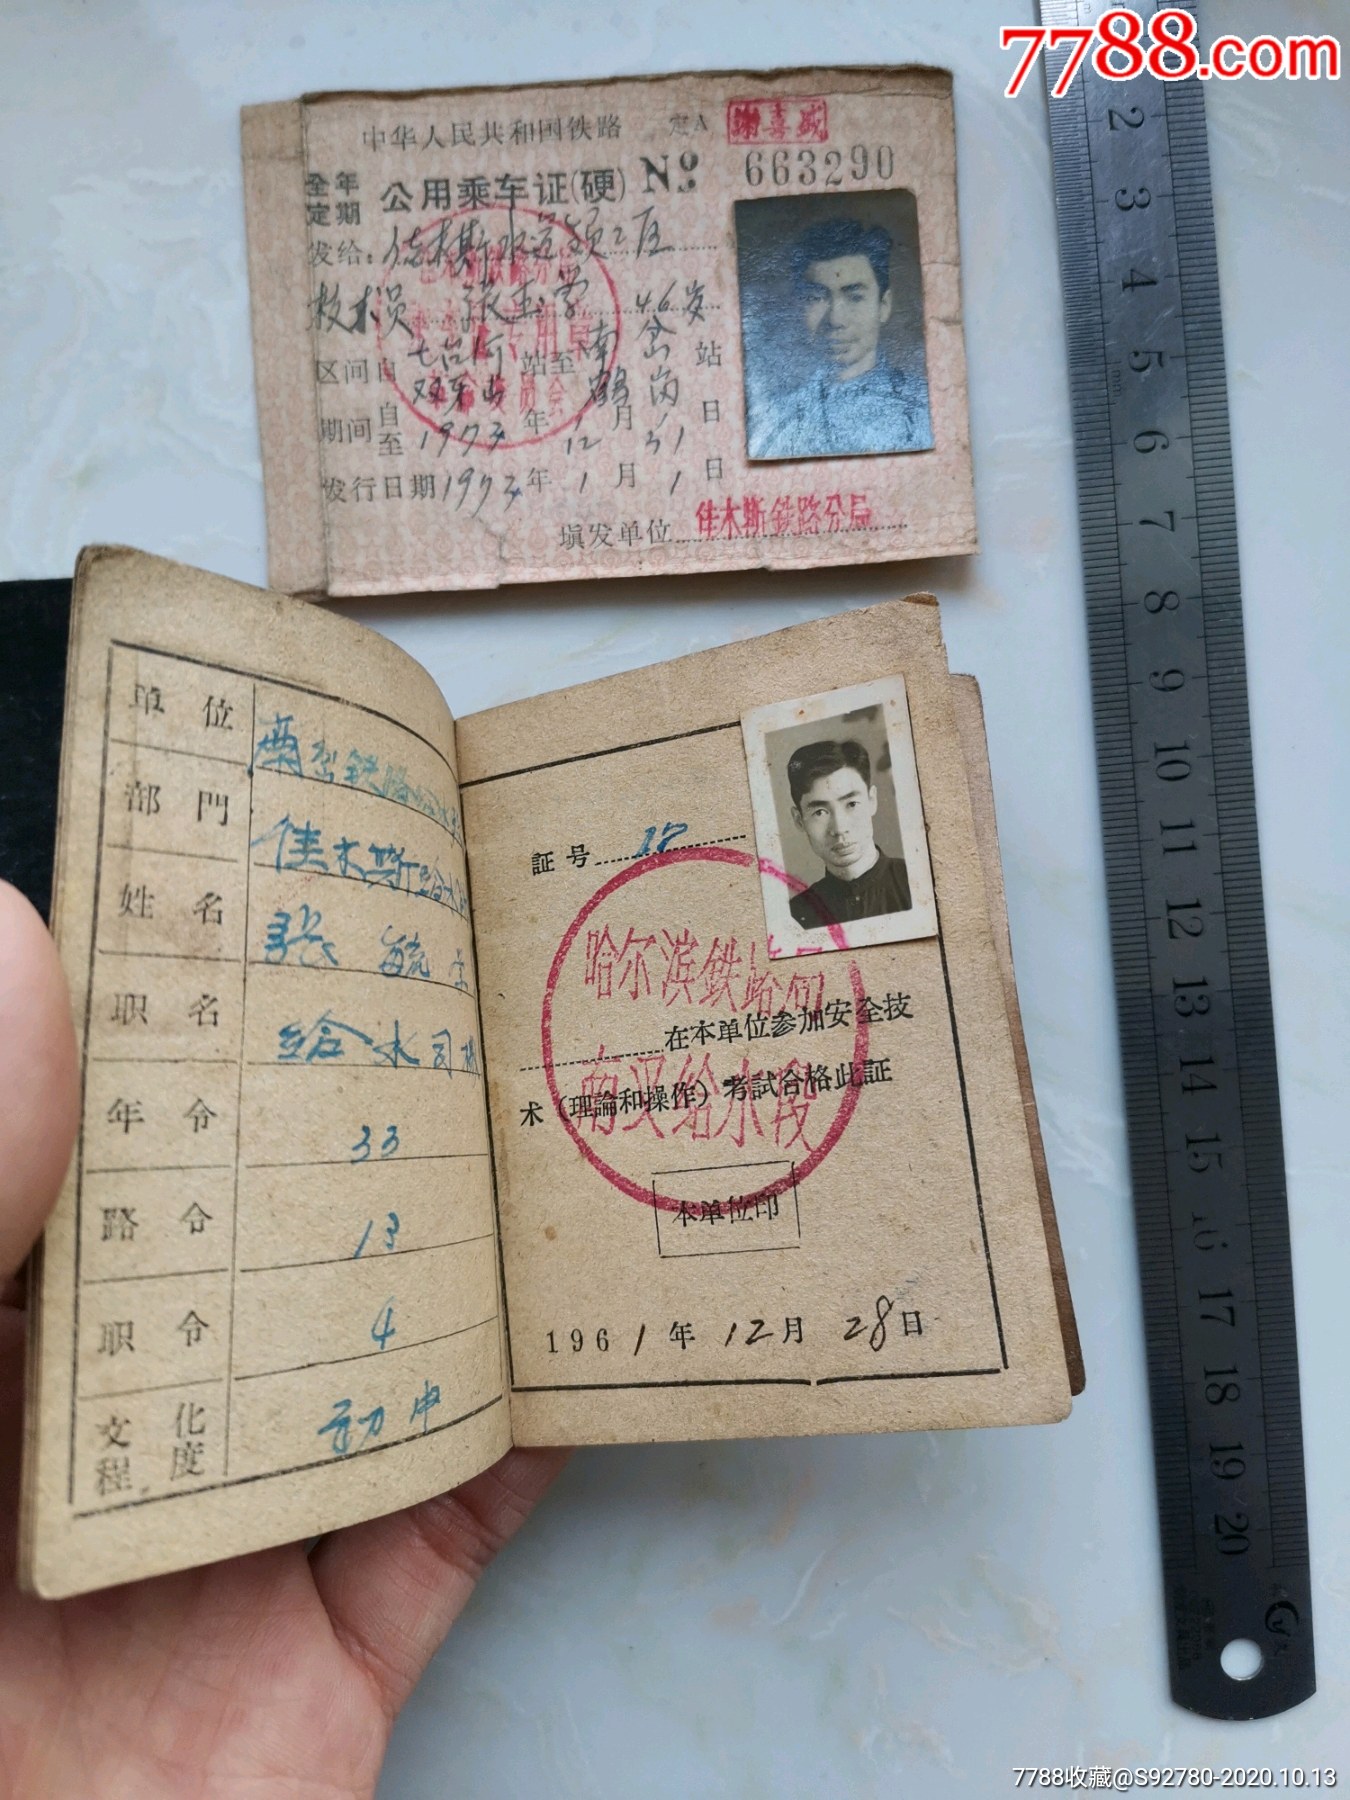 7788.com
中华人民共和国铁路 定A
谢喜盛
全年定期 公用乘车证(硬) No 663290
发给:佳木斯水道领工区
技术员 张玉学 46岁
区间自 七台河 双牙山 站至 南岔 鹤岗 站
期间自至 1973年 1 12月 31日
发行日期1973年1月1日
填发单位 佳木斯鉄路分局
单位 南岔铁路给水段
部門 佳木斯给水
姓名 張毓学
职名 给水司机
年令 33
路令 13
职令 4
文化程度 初中
証号
哈尔滨鉄路局
南叉给水段
在本单位参加安全技
术(理論和操作)考試合格此証
本单位印
1961年12月28日
2 3 4 5 6 7 8 9 10 11 12 13 14 15 16 17 18 19 20
7788收藏@S92780-2020.10.13